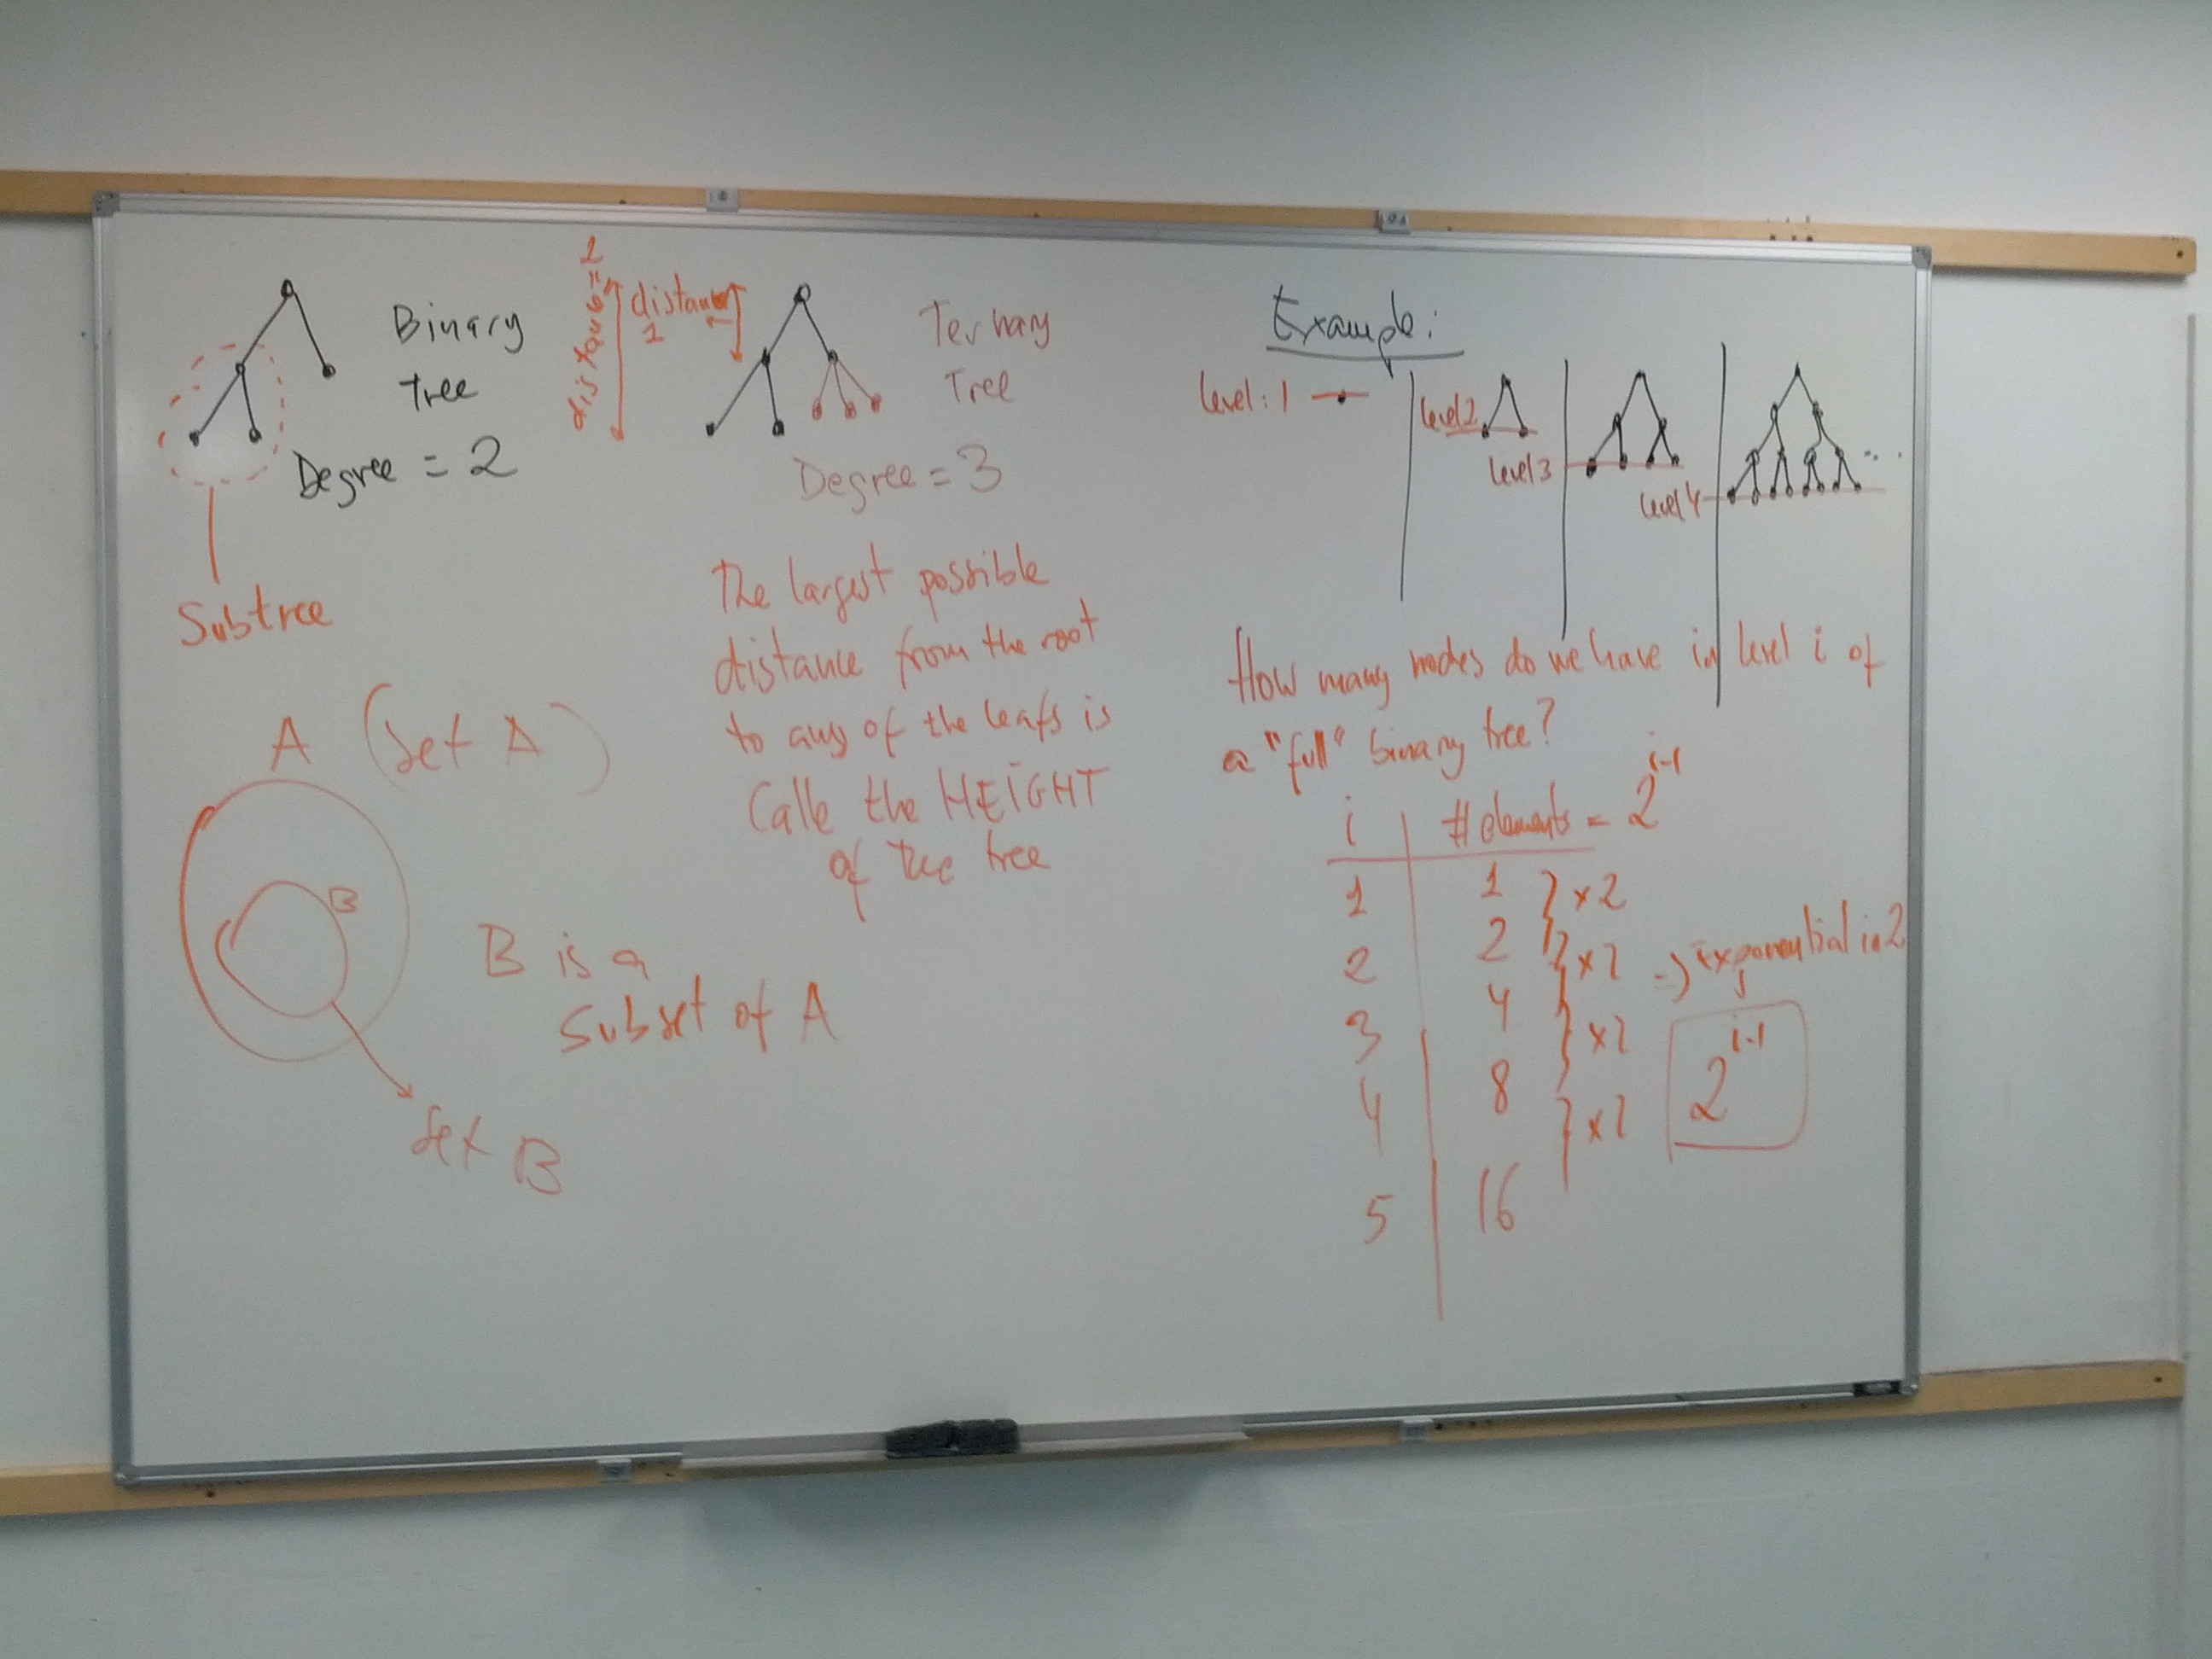 Binary
Tree
Degree = 2
Subtree
distance = 2
distance
1
Ternary
Tree
Degree = 3
The largest possible
distance from the root
to any of the leafs is
Calle the HEIGHT
of the tree
A (Set A)
B
B is a
Subset of A
Set B
Example:
level: 1
level 2
level 3
level 4
...
How many nodes do we have in level i of
a "full" binary tree?
i # elements = 2^i-1
1 1
x2
2 2
x2 => Exponential in 2
3 4
x2
2^i-1
4 8
x2
5 16